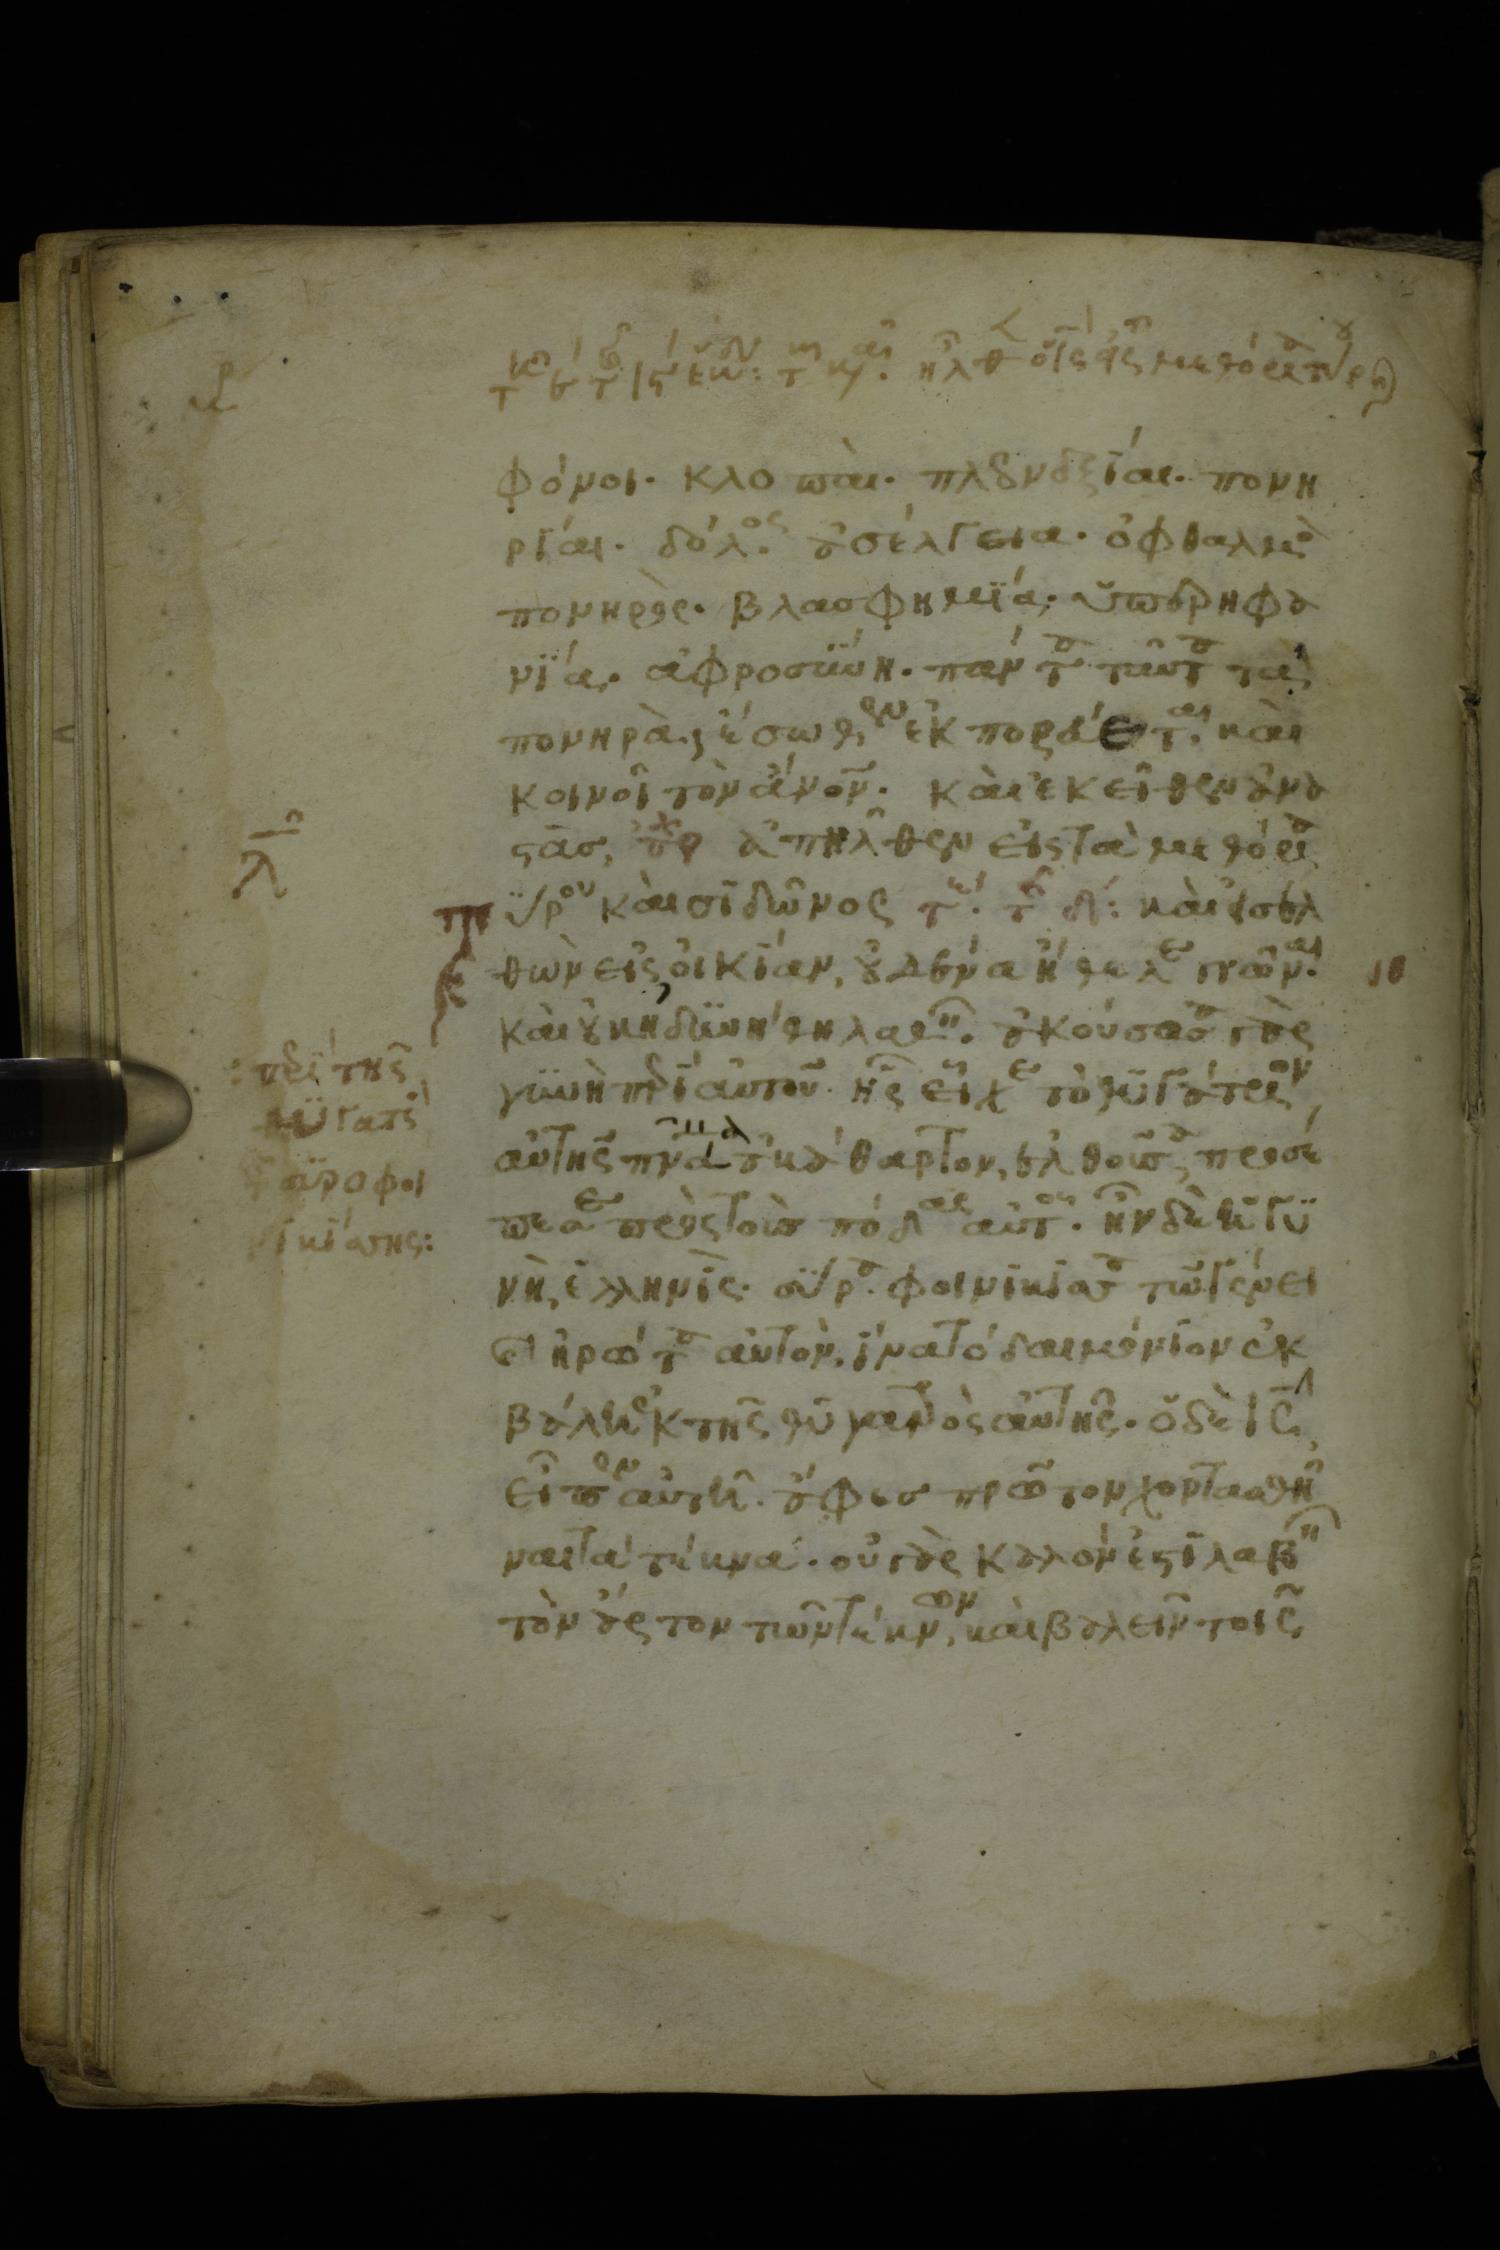 φόνοι. κλοπαὶ. πλεονεξίαι. πονη
ρίαι. δόλος. ἀσέλγεια. ὀφθαλμὸς
πονηρὸς. βλασφημΐα. ὑπερηφα
νΐα. ἀφροσΰνη. πάντα ταῦτα τὰ
πονηρὰ ἔσωθεν ἐκπορεύεται. καὶ
κοινοῖ τὸν ἄνον. καὶ ἐκεῖθεν ἀνα
στὰσ, ἀπῆλθεν εἰς τὰ μεθόρια
τΰρου καὶ σιδῶνος καὶ εἰσελ
θὼν εἰς οἰκίαν, οὐδένα ἤθελε γνῶναι.
καὶ οὐκ ἠδυνήθη λαθεῖν. ἀκούσασα γὰρ
γυνὴ περὶ αὐτοῦ. ἧς εἶχε τὸ θυγάτριον
αὐτῆς πνα ἀκάθαρτον, ἐλθοῦσα προσέ
πεσε πρὸς τοὺς πόδας αὐτοῦ. ἦν δὲ ἡ γυ
νὴ, ἑλληνὶς. σΰρα φοινίκισσα τῶ γένει
καὶ ἠρώτα αὐτὸν, ἵνα τὸ δαιμόνιον ἐκ
βάλη ἐκ τῆς θυγατρὸς αὐτῆς. ὁ δὲ ις
εἶπεν αὐτῆ. ἄφεσ πρῶτον χορτασθῆ
ναι τὰ τέκνα. οὐ γὰρ καλόν ἐστι λαβεῖν
τὸν ἄρτον τῶν τέκνων, καὶ βαλεῖν τοῖς
λ
περὶ τῆς
θυγατρὸς
σΰροφοι
νικίσσης: